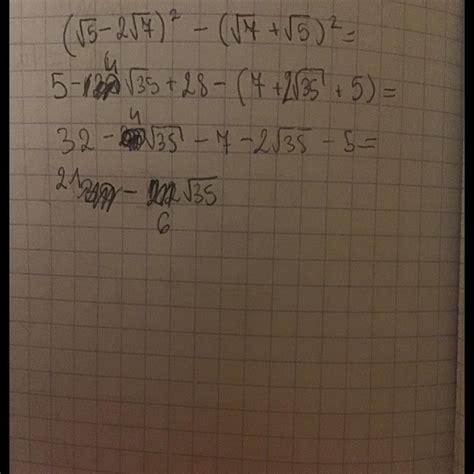 (√5-2√7)² - (√7+√5)² =
5-4√35+28-(7+2√35+5)=
32-4√35-7-2√35-5=
21-6√35